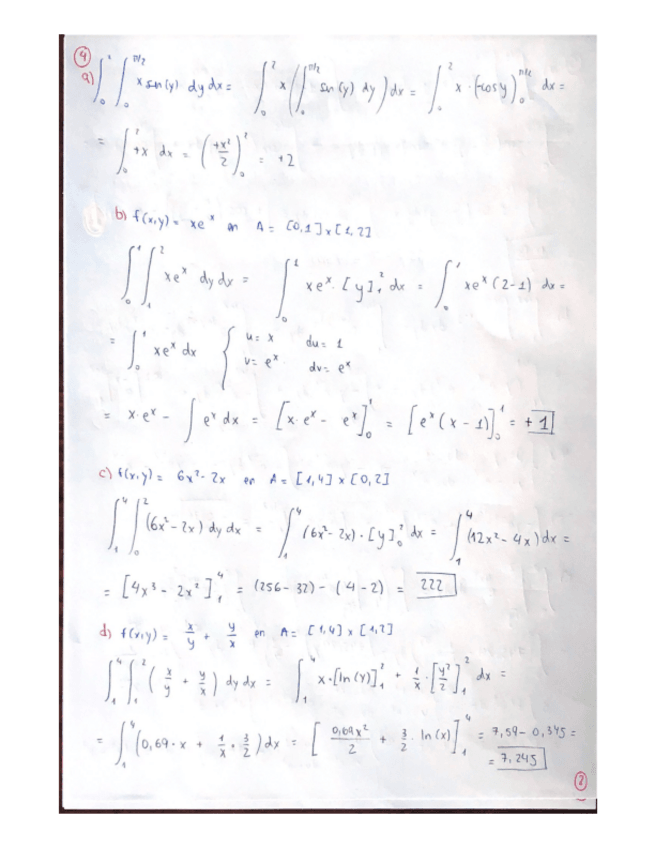 ④
a) ∫₀² ∫₀^{π/2} x sen(y) dy dx = ∫₀² x (∫₀^{π/2} sen(y) dy) dx = ∫₀² x · (-cos y)₀^{π/2} dx =
= ∫₀² +x dx = (+x²/2)₀² = +2
b) f(x,y) = xeˣ en A = [0,1]x[1,2]
∫₀¹ ∫₁² xeˣ dy dx = ∫₀¹ xeˣ · [y]₁² dx = ∫₀¹ xeˣ (2-1) dx =
= ∫₀¹ xeˣ dx { u = x du = 1
v = eˣ dv = eˣ
= x·eˣ - ∫ eˣ dx = [x·eˣ - eˣ]₀¹ = [eˣ(x-1)]₀¹ = +1
c) f(x,y) = 6x² - 2x en A = [1,4] x [0,2]
∫₁⁴ ∫₀² (6x² - 2x) dy dx = ∫₁⁴ (6x² - 2x) · [y]₀² dx = ∫₁⁴ (12x² - 4x) dx =
= [4x³ - 2x²]₁⁴ = (256 - 32) - (4 - 2) = 222
d) f(x,y) = x/y + y/x en A = [1,4] x [1,2]
∫₁⁴ ∫₁² (x/y + y/x) dy dx = ∫₁⁴ x·[ln(y)]₁² + 1/x · [y²/2]₁² dx =
= ∫₁⁴ (0,69·x + 1/x · 3/2) dx = [0,69x²/2 + 3/2 · ln(x)]₁⁴ = 7,59 - 0,345 =
= 7,245
②